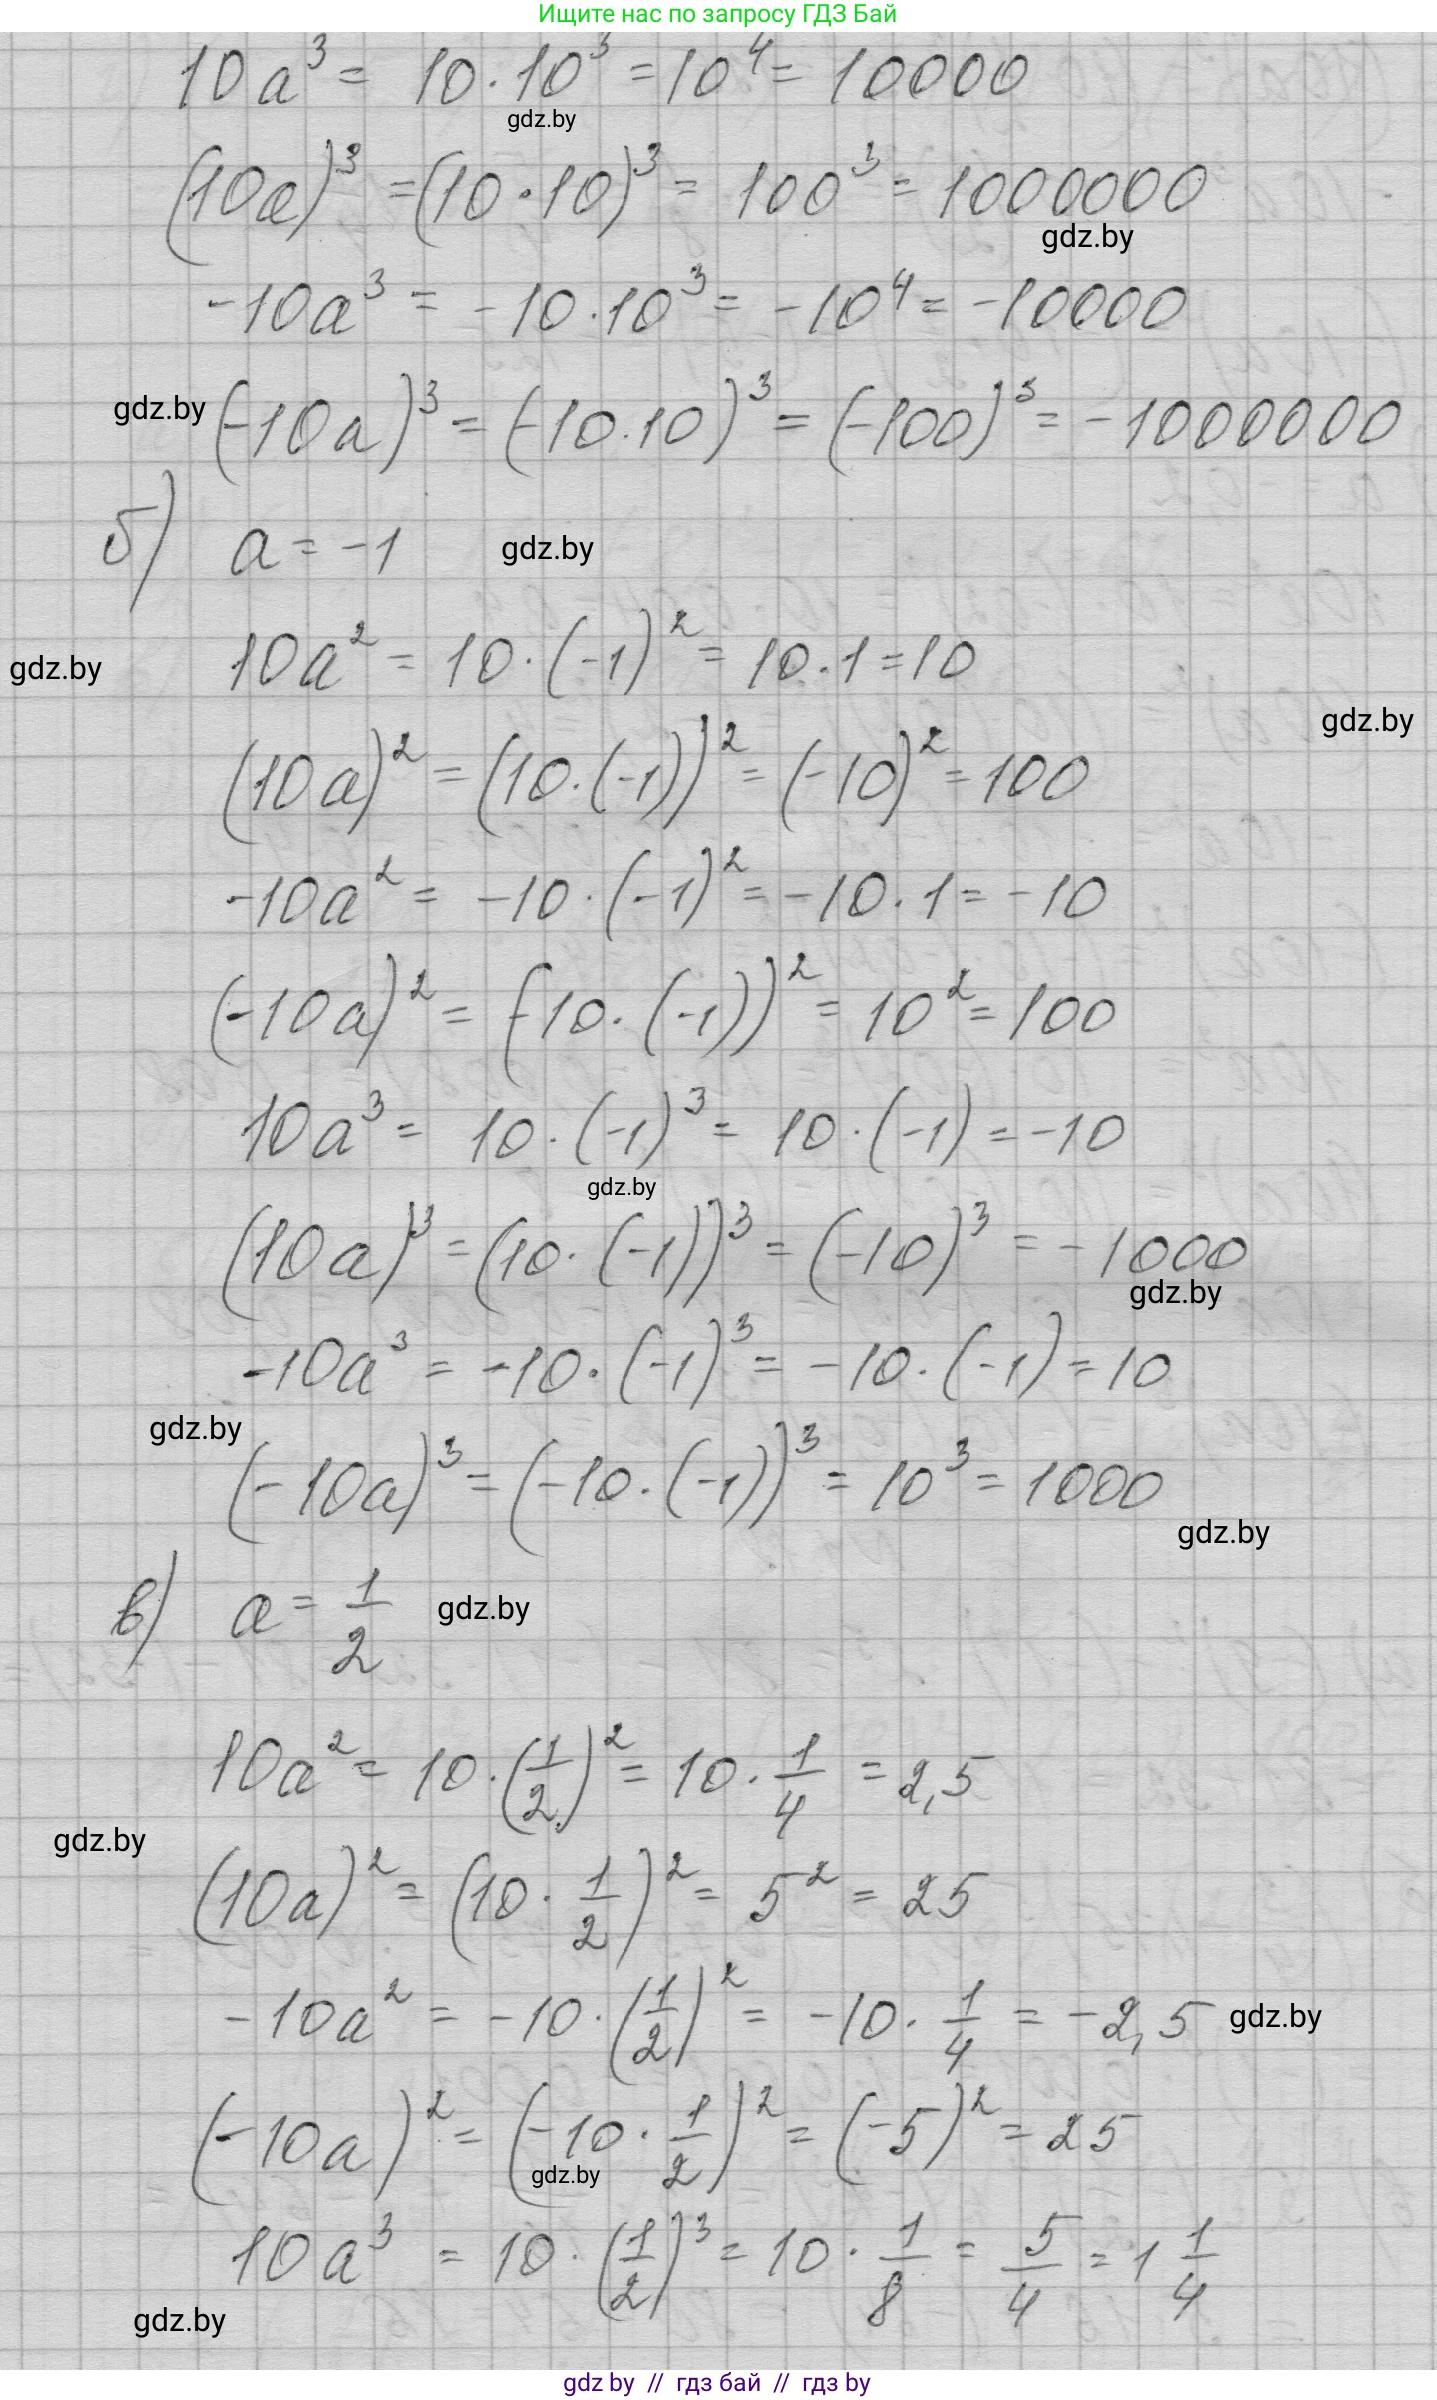 Ищите нас по запросу ГДЗ Бай
10a³ = 10·10³ = 10⁴ = 10000
gdz.by
(10a)³ = (10·10)³ = 100³ = 1000000
gdz.by
-10a³ = -10·10³ = -10⁴ = -10000
gdz.by
(-10a)³ = (-10·10)³ = (-100)³ = -1000000
б) a = -1
gdz.by
10a² = 10·(-1)² = 10·1 = 10
gdz.by
gdz.by
(10a)² = (10·(-1))² = (-10)² = 100
-10a² = -10·(-1)² = -10·1 = -10
(-10a)² = (-10·(-1))² = 10² = 100
10a³ = 10·(-1)³ = 10·(-1) = -10
gdz.by
(10a)³ = (10·(-1))³ = (-10)³ = -1000
gdz.by
-10a³ = -10·(-1)³ = -10·(-1) = 10
gdz.by
(-10a)³ = (-10·(-1))³ = 10³ = 1000
gdz.by
в) a = 1/2
gdz.by
10a² = 10·(1/2)² = 10·1/4 = 2,5
gdz.by
(10a)² = (10·1/2)² = 5² = 25
-10a² = -10·(1/2)² = -10·1/4 = -2,5
gdz.by
(-10a)² = (-10·1/2)² = (-5)² = 25
gdz.by
10a³ = 10·(1/2)³ = 10·1/8 = 5/4 = 1 1/4
gdz.by
gdz by // гдз бай // гдз by